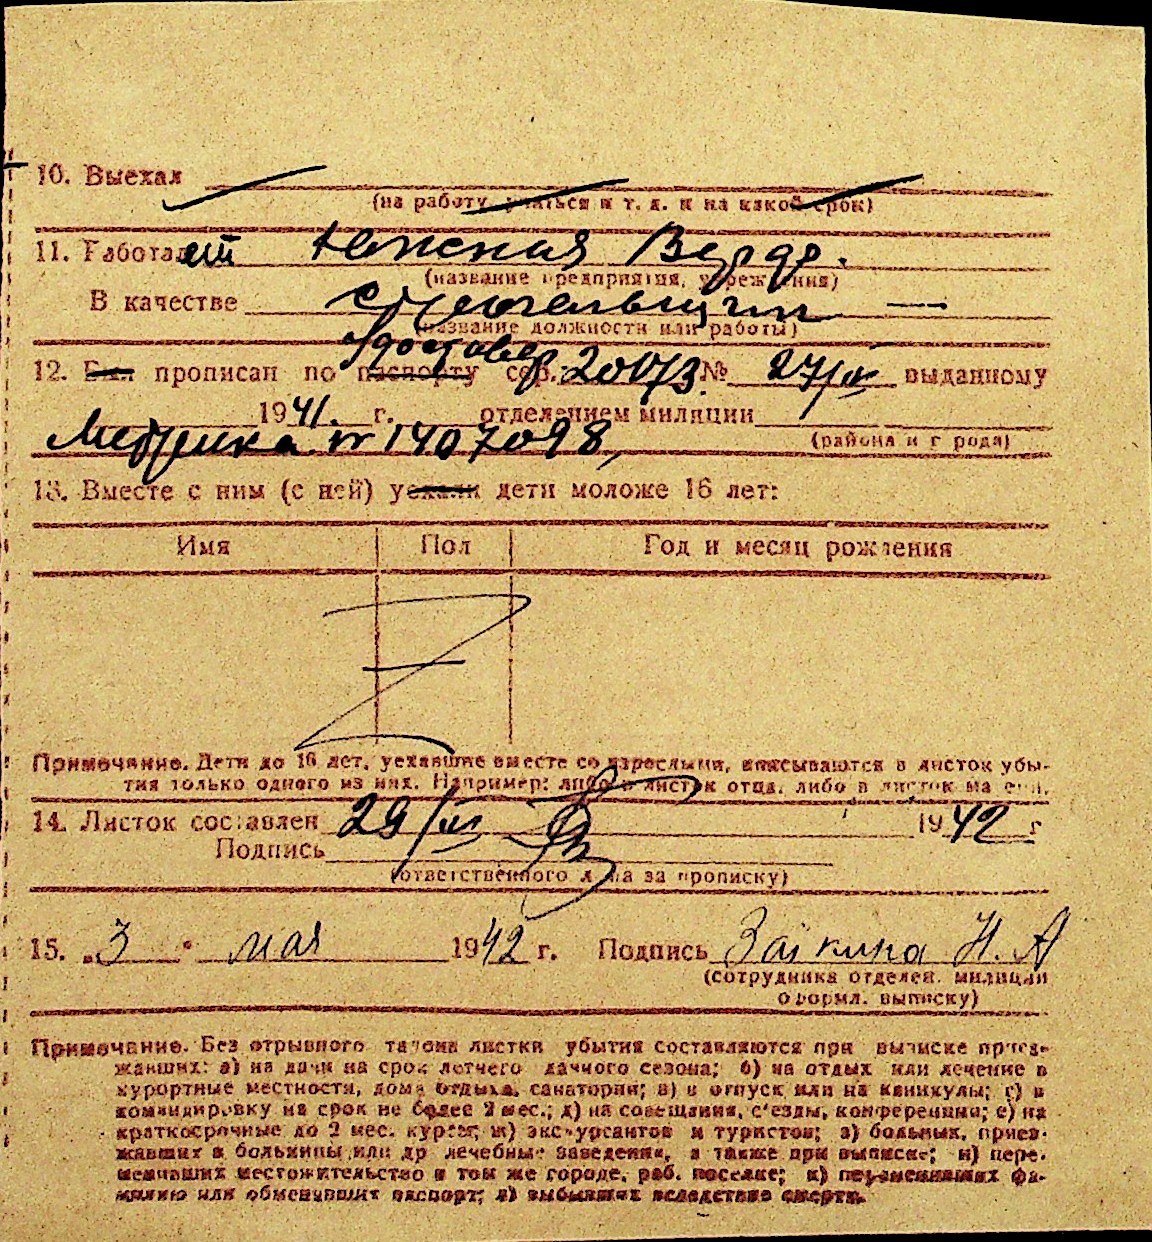 10. Выехал
(на работу, учиться и т. д. и на какой срок)
11. Работает
(название предприятия, учреждения)
В качестве
(название должности или работы)
12. Был прописан по паспорту сер. № выданному
1941 г. отделением милиции
Метрика № 1407098,
(района и города)
13. Вместе с ним (с ней) уехали дети моложе 16 лет:
Имя Пол Год и месяц рождения
Примечание. Дети до 16 лет, уехавшие вместе со взрослыми, вписываются в листок убы-
тия только одного из них. Например: либо в листок отца, либо в листок матери.
14. Листок составлен 29/IV 1942 г
Подпись
(ответственного лица за прописку)
15. „3 " мая 1942 г. Подпись Заікина Н. А
(сотрудника отделен. милиции
оформл. выписку)
Примечание. Без отрывного талона листки убытия составляются при выписке приез-
жавших: а) на дачи на срок летнего дачного сезона; б) на отдых или лечение в
курортные местности, дома отдыха, санатории; в) в отпуск или на каникулы; г) в
командировку на срок не более 2 мес.; д) на совещания, с'езды, конференции; е) на
краткосрочные до 2 мес. курсы; ж) экскурсантов и туристов; з) больных, приез-
жавших в больницы или др лечебные заведения, а также при выписке; и) пере-
менивших местожительство в том же городе, раб. поселке; к) переменивших фа-
милию или обменявших паспорт; л) выбывших вследствие смерти.